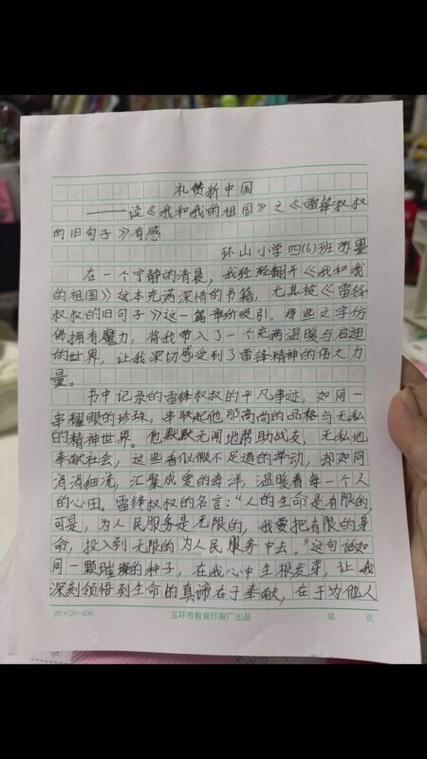 礼赞新中国
——读《我和我的祖国》之《雷锋叔叔
的旧句子》有感
环山小学四(6)班 苏墨
在一个宁静的清晨，我轻轻翻开《我和我
的祖国》这本充满深情的书籍，尤其被《雷锋
叔叔的旧句子》这一篇章吸引。那些文字仿
佛拥有魔力，将我带入了一个充满温暖与启迪
的世界，让我深切感受到了雷锋精神的伟大力
量。
书中记录的雷锋叔叔的平凡事迹，如同一
串耀眼的珍珠，串联起他那高尚的品格与无私
的精神世界。他默默无闻地帮助战友，无私地
奉献社会，这些看似微不足道的举动，却如同
涓涓细流，汇聚成爱的海洋，温暖着每一个人
的心田。雷锋叔叔的名言：“人的生命是有限的，
可是，为人民服务是无限的，我要把有限的生
命，投入到无限的为人民服务中去。”这句话如
同一颗璀璨的种子，在我心中生根发芽，让我
深刻领悟到生命的真谛在于奉献，在于为他人
20×20=400 玉环市教育印刷厂出品 第 页